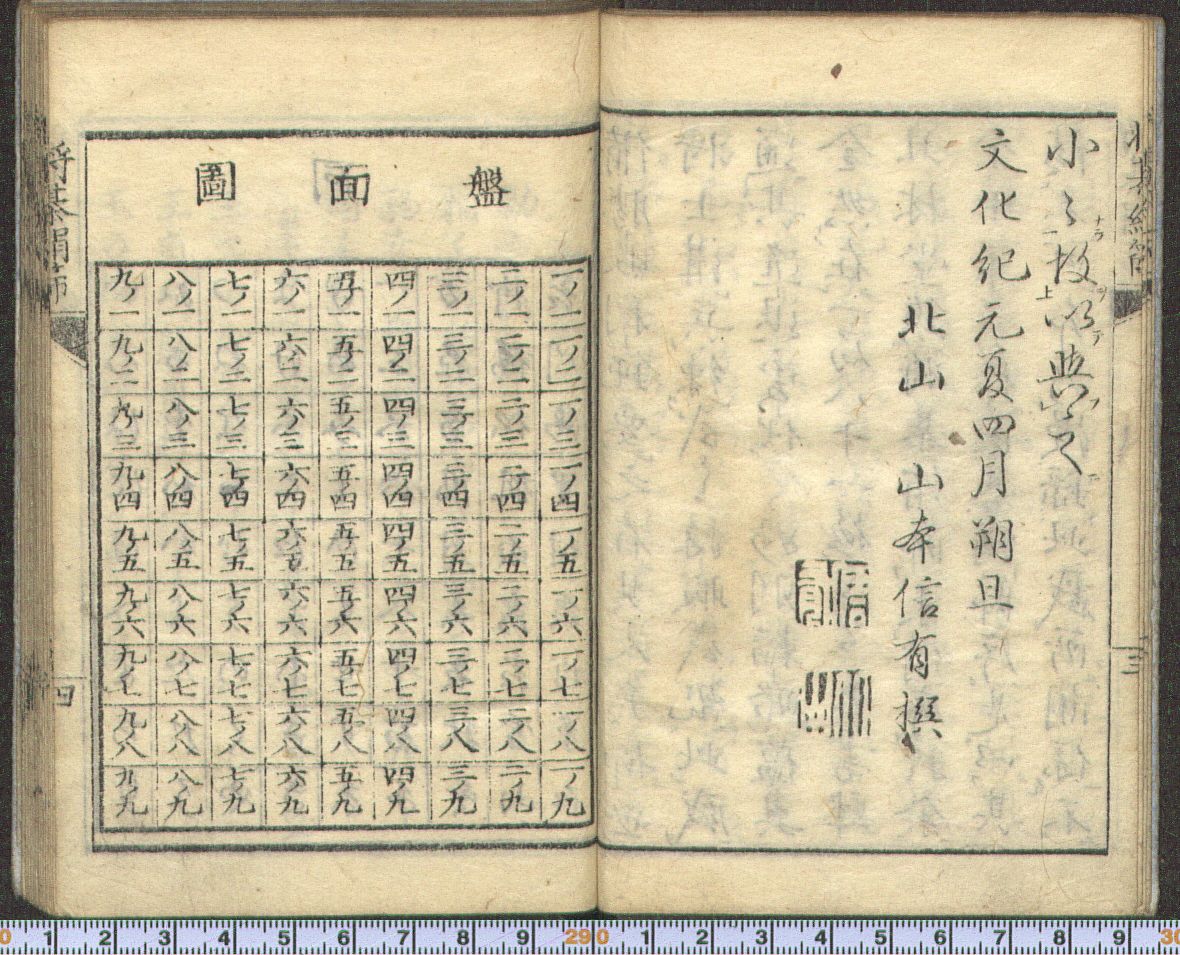 小〻故以典之
文化紀元夏四月朔旦
北山 山本信有撰
三
盤面圖
一ノ一 二ノ一 三ノ一 四ノ一 五ノ一 六ノ一 七ノ一 八ノ一 九ノ一
一ノ二 二ノ二 三ノ二 四ノ二 五ノ二 六ノ二 七ノ二 八ノ二 九ノ二
一ノ三 二ノ三 三ノ三 四ノ三 五ノ三 六ノ三 七ノ三 八ノ三 九ノ三
一ノ四 二ノ四 三ノ四 四ノ四 五ノ四 六ノ四 七ノ四 八ノ四 九ノ四
一ノ五 二ノ五 三ノ五 四ノ五 五ノ五 六ノ五 七ノ五 八ノ五 九ノ五
一ノ六 二ノ六 三ノ六 四ノ六 五ノ六 六ノ六 七ノ六 八ノ六 九ノ六
一ノ七 二ノ七 三ノ七 四ノ七 五ノ七 六ノ七 七ノ七 八ノ七 九ノ七
一ノ八 二ノ八 三ノ八 四ノ八 五ノ八 六ノ八 七ノ八 八ノ八 九ノ八
一ノ九 二ノ九 三ノ九 四ノ九 五ノ九 六ノ九 七ノ九 八ノ九 九ノ九
四
0 1 2 3 4 5 6 7 8 9 29 0 1 2 3 4 5 6 7 8 9 30